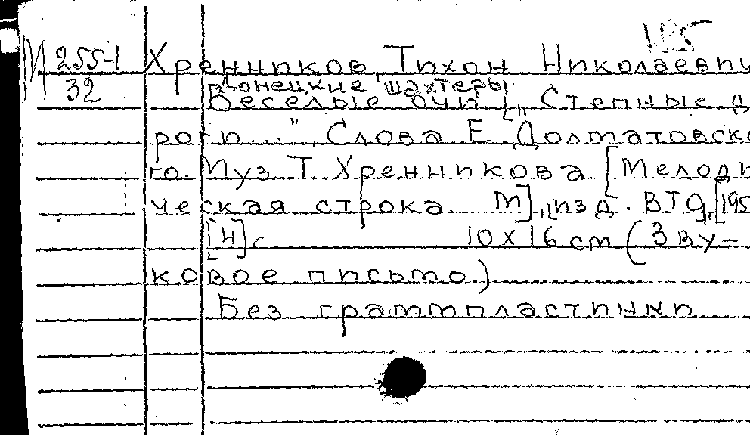 185
М 255-1 Хренников, Тихон Николаевич
32 Донецкие шахтеры
Веселые очи [„Степные до
роги..." Слова Е. Долматовско
го. Муз. Т. Хренникова [Мелоди
ческая строка. М], изд. ВТО, [195
[4] с. 10 х 16 см (Зву-
ковое письмо.)
Без грампластинки